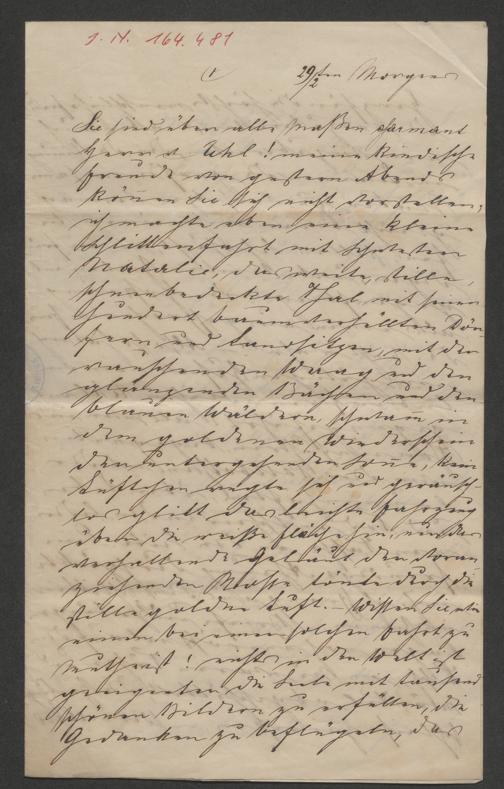 J. N. 164.481
(1
29/2 ten Morgens
Sie sind über alle Maßen charmant
Herr v Uhl! meine kindische
Freude von gestern Abends
können Sie sich nicht vorstellen,
ich machte eben eine kleine
Schlittenfahrt mit Schwester
Natalie, das weite, stille,
schneebedeckte Thal, mit seinen
hundert baumumhüllten Dör-
fern und Landsitzen, mit der
rauschenden Waag und den
glänzenden Bächen und den
blauen Wäldern, schwam in
dem goldenen Wiederschein
der untergehenden Sonne, kein
Lüftchen regte sich und geräusch-
los glitt das leichte Fahrzeug
über die weiße Fläche hin, nur das
verhallende Geläut der voran
ziehenden Rosse tönte durch die
stille goldne Luft. – Wissen Sie wie
einem bei einer solchen Fahrt zu
Muthe ist! nichts in der Welt ist
geeigneter die Seele mit tausend
schönen Bildern zu erfüllen, die
Gedanken zu beflügeln, das